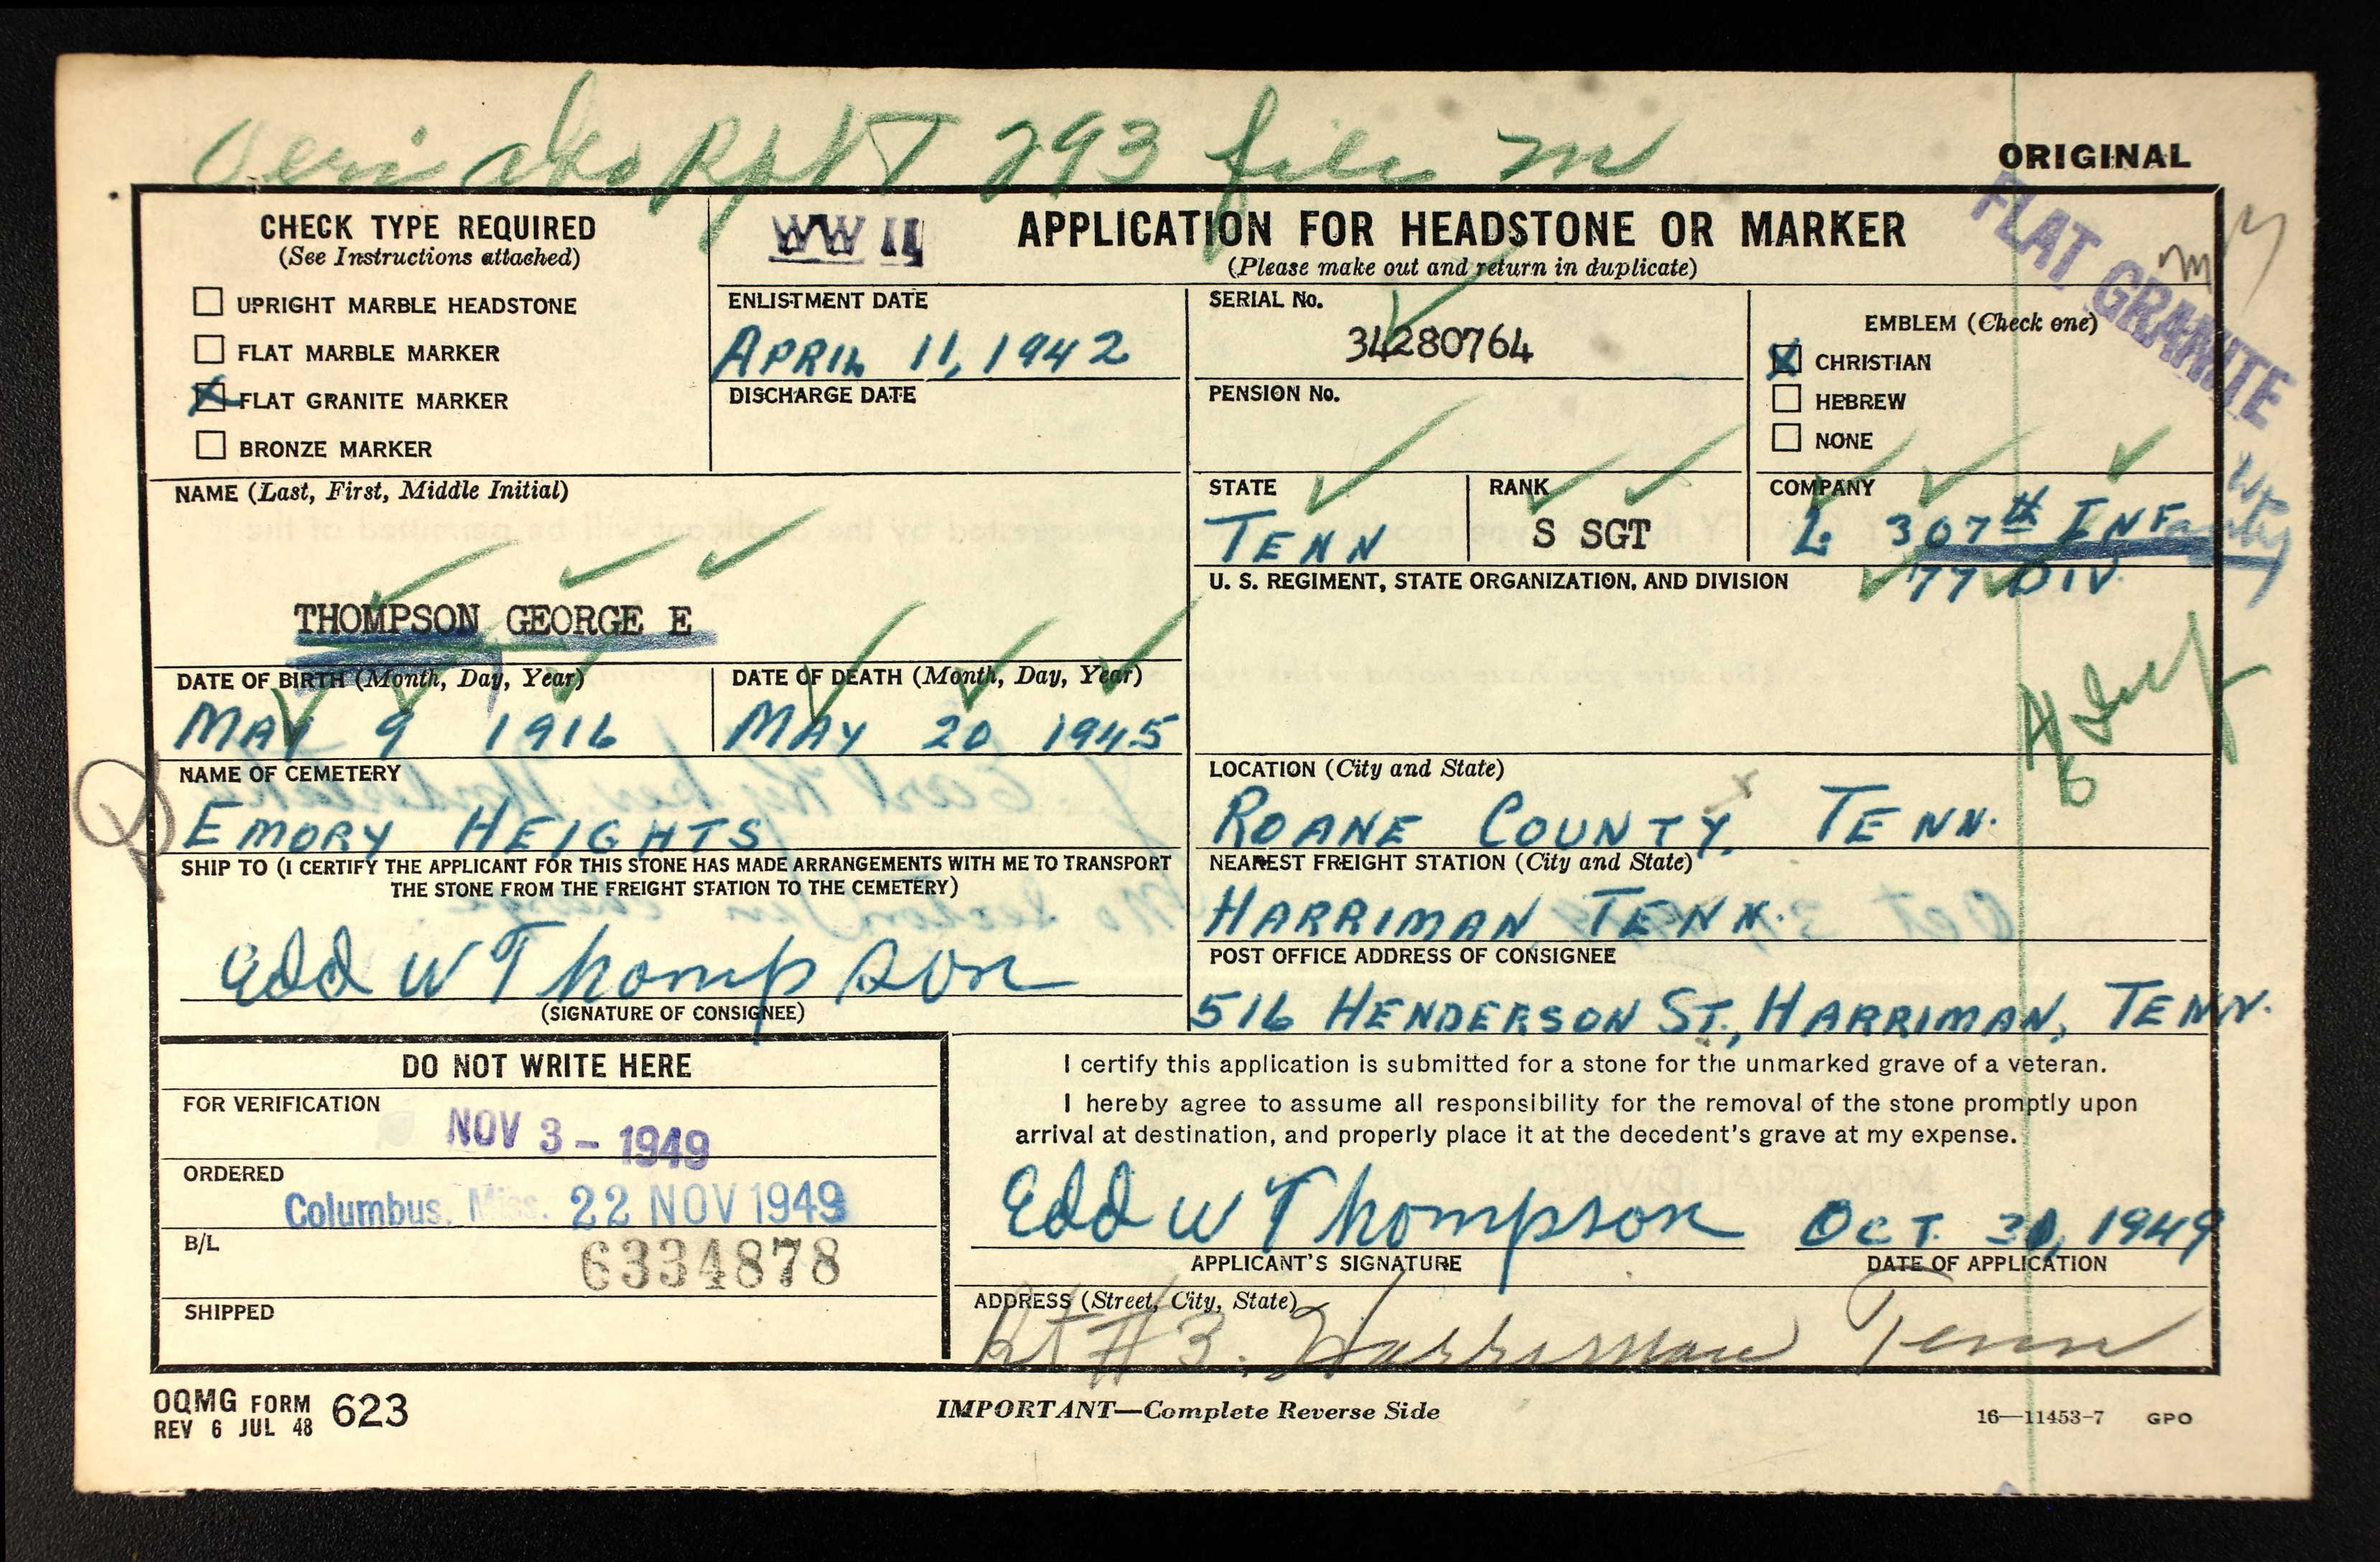 293 file
ORIGINAL
FLAT GRANITE
CHECK TYPE REQUIRED
(See Instructions attached)
UPRIGHT MARBLE HEADSTONE
FLAT MARBLE MARKER
X FLAT GRANITE MARKER
BRONZE MARKER
WW II
APPLICATION FOR HEADSTONE OR MARKER
(Please make out and return in duplicate)
ENLISTMENT DATE
APRIL 11, 1942
DISCHARGE DATE
SERIAL No.
34280764
PENSION No.
EMBLEM (Check one)
X CHRISTIAN
HEBREW
NONE
NAME (Last, First, Middle Initial)
THOMPSON GEORGE E
STATE
TENN
RANK
S SGT
COMPANY
L 307th INFantry
U. S. REGIMENT, STATE ORGANIZATION, AND DIVISION
77 DIV.
DATE OF BIRTH (Month, Day, Year)
MAY 9 1916
DATE OF DEATH (Month, Day, Year)
MAY 20 1945
NAME OF CEMETERY
EMORY HEIGHTS
LOCATION (City and State)
ROANE COUNTY, TENN.
SHIP TO (I CERTIFY THE APPLICANT FOR THIS STONE HAS MADE ARRANGEMENTS WITH ME TO TRANSPORT
THE STONE FROM THE FREIGHT STATION TO THE CEMETERY)
Edd W Thompson
(SIGNATURE OF CONSIGNEE)
NEAREST FREIGHT STATION (City and State)
HARRIMAN, TENN.
POST OFFICE ADDRESS OF CONSIGNEE
516 HENDERSON ST., HARRIMAN, TENN.
DO NOT WRITE HERE
FOR VERIFICATION
NOV 3 - 1949
ORDERED
Columbus, Miss. 22 NOV 1949
B/L
6334878
SHIPPED
I certify this application is submitted for a stone for the unmarked grave of a veteran.
I hereby agree to assume all responsibility for the removal of the stone promptly upon
arrival at destination, and properly place it at the decedent's grave at my expense.
Edd W Thompson
APPLICANT'S SIGNATURE
OCT. 1949
DATE OF APPLICATION
ADDRESS (Street, City, State)
Rt #3. Harriman Tenn
OQMG FORM 623
REV 6 JUL 48
IMPORTANT—Complete Reverse Side
16—11453-7 GPO